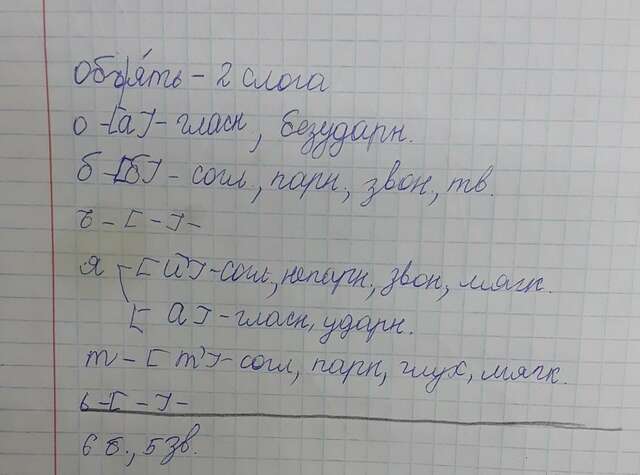 Объя́ть - 2 слога
о -[а]- гласн, безударн.
б -[б]- согл, парн, звон, тв.
ъ - [ - ] -
я - [й']- согл, непарн, звон, мягк.
[а]- гласн, ударн.
т - [т']- согл, парн, глух, мягк.
ь -[ - ] -
6 б., 5 зв.